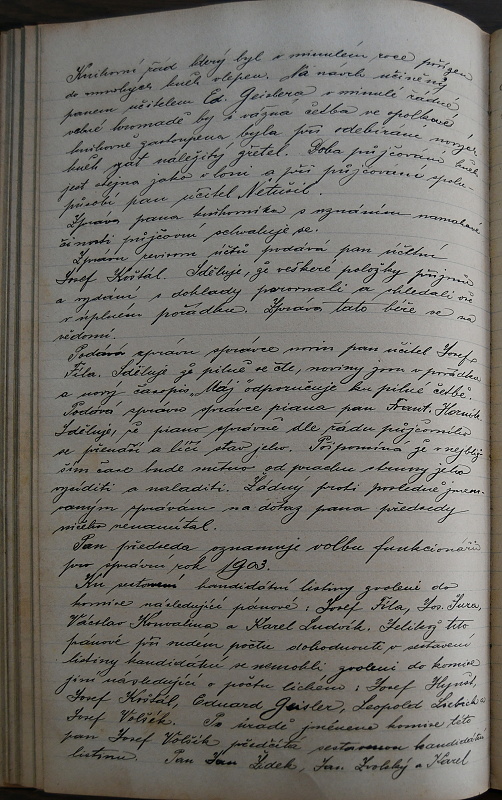 Knihovní řád který byl v minulém roce pořízen
do mnohých knih vlepen. Na návrh učiněný
panem učitelem Ed. Geislera v minulé řádné
valné hromadě by i vážná četba ve spolkové
knihovně zastoupena byla při odebírání nových
knih vzat náležitý zřetel. Doba půjčování knih
jest stejna jako v loni a při půjčování spolu-
působí pan učitel Netušil.
Zpráva pana knihovníka s uznáním namáhavé
činnosti půjčovní schvaluje se.
Zprávu revisorů účtů podává pan účetní
Josef Košťál. Sděluje, že veškeré položky příjmů
a vydání s doklady porovnali a shledali vše
v úplném pořádku. Zpráva tato béře se na
vědomí.
Podává zprávu správce novin pan učitel Josef
Fila. Sděluje že pilně se čte, noviny jsou v pořádku
a nový časopis „Máj" odporučuje ku pilné četbě.
Podává zprávu správce piana pan Frant. Horník
Sděluje, že piano správně dle řádu půjčovního
se přenáší a líčí stav jeho. Připomíná že v nejbliž-
ším čase bude nutno od pradu struny jeho
vyčistiti a naladiti. Žádný proti posledně jmeno-
vaným zprávám na dotaz pana předsedy
ničeho nenamítal.
Pan předseda oznamuje volbu funkcionářů
pro správní rok 1903.
Ku sestavení kandidátní listiny zvoleni do
komise následující pánové: Josef Fila, Jos. Jura,
Václav Konvalina a Karel Ludvík. Jelikož tito
pánové při sudém počtu shodnouti v sestavení
listiny kandidátní se nemohli zvoleni do komise
jiní následující o počtu lichém: Josef Hynst,
Josef Košťál, Eduard Geisler, Leopold a
Josef Volšík. Po úradě jménem komise této
pan Josef Volšík předčítá sestavenou kandidátní
listinu. Pan Jan Zídek, Jan Zvolský a Karel